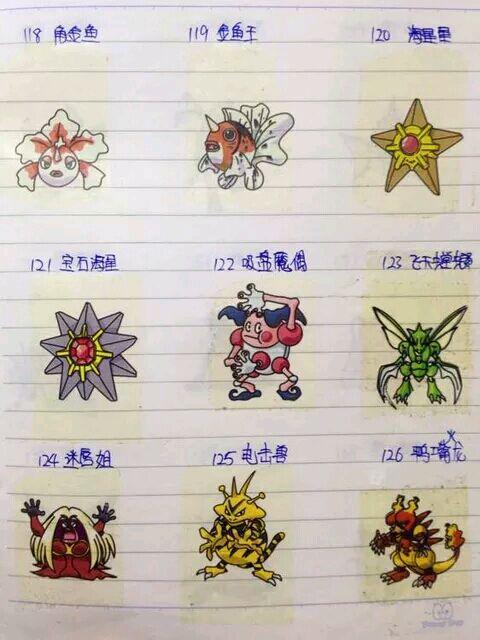 118 角金鱼
119 金鱼王
120 海星星
121 宝石海星
122 吸盘魔偶
123 飞天螳螂
124 迷唇姐
125 电击兽
126 鸭嘴火龙